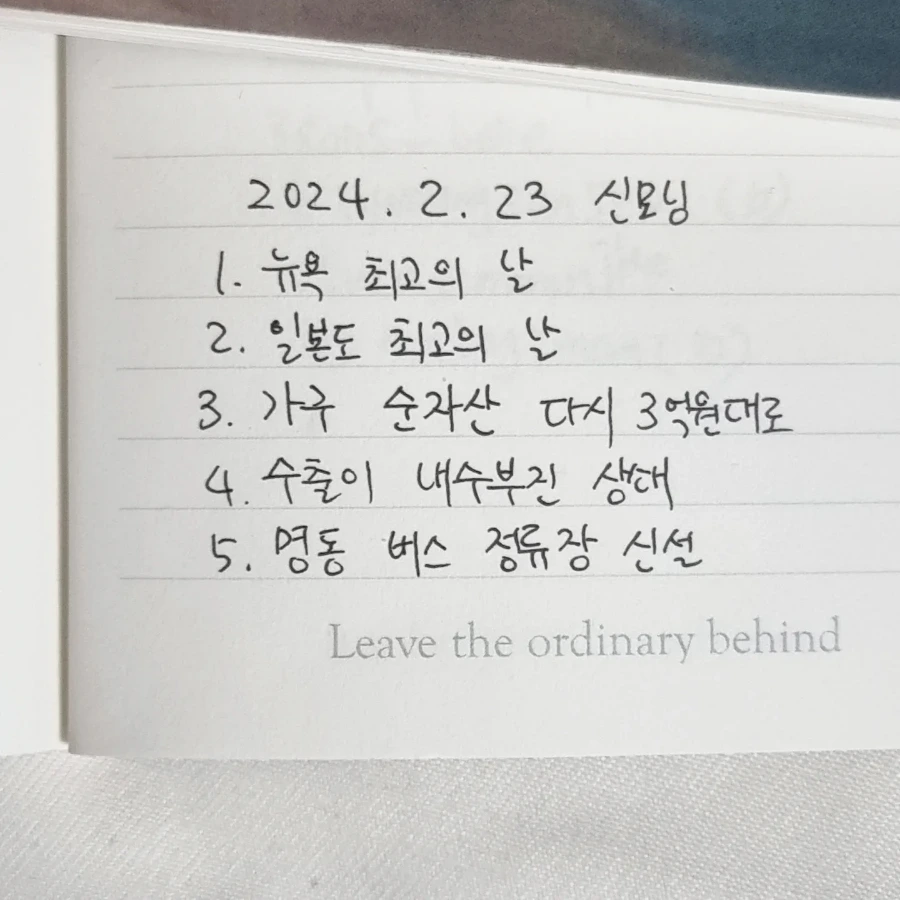 2024. 2. 23 신모닝
1. 뉴욕 최고의 날
2. 일본도 최고의 날
3. 가구 순자산 다시 3억원대로
4. 수출이 내수부진 상태
5. 명동 버스 정류장 신설
Leave the ordinary behind